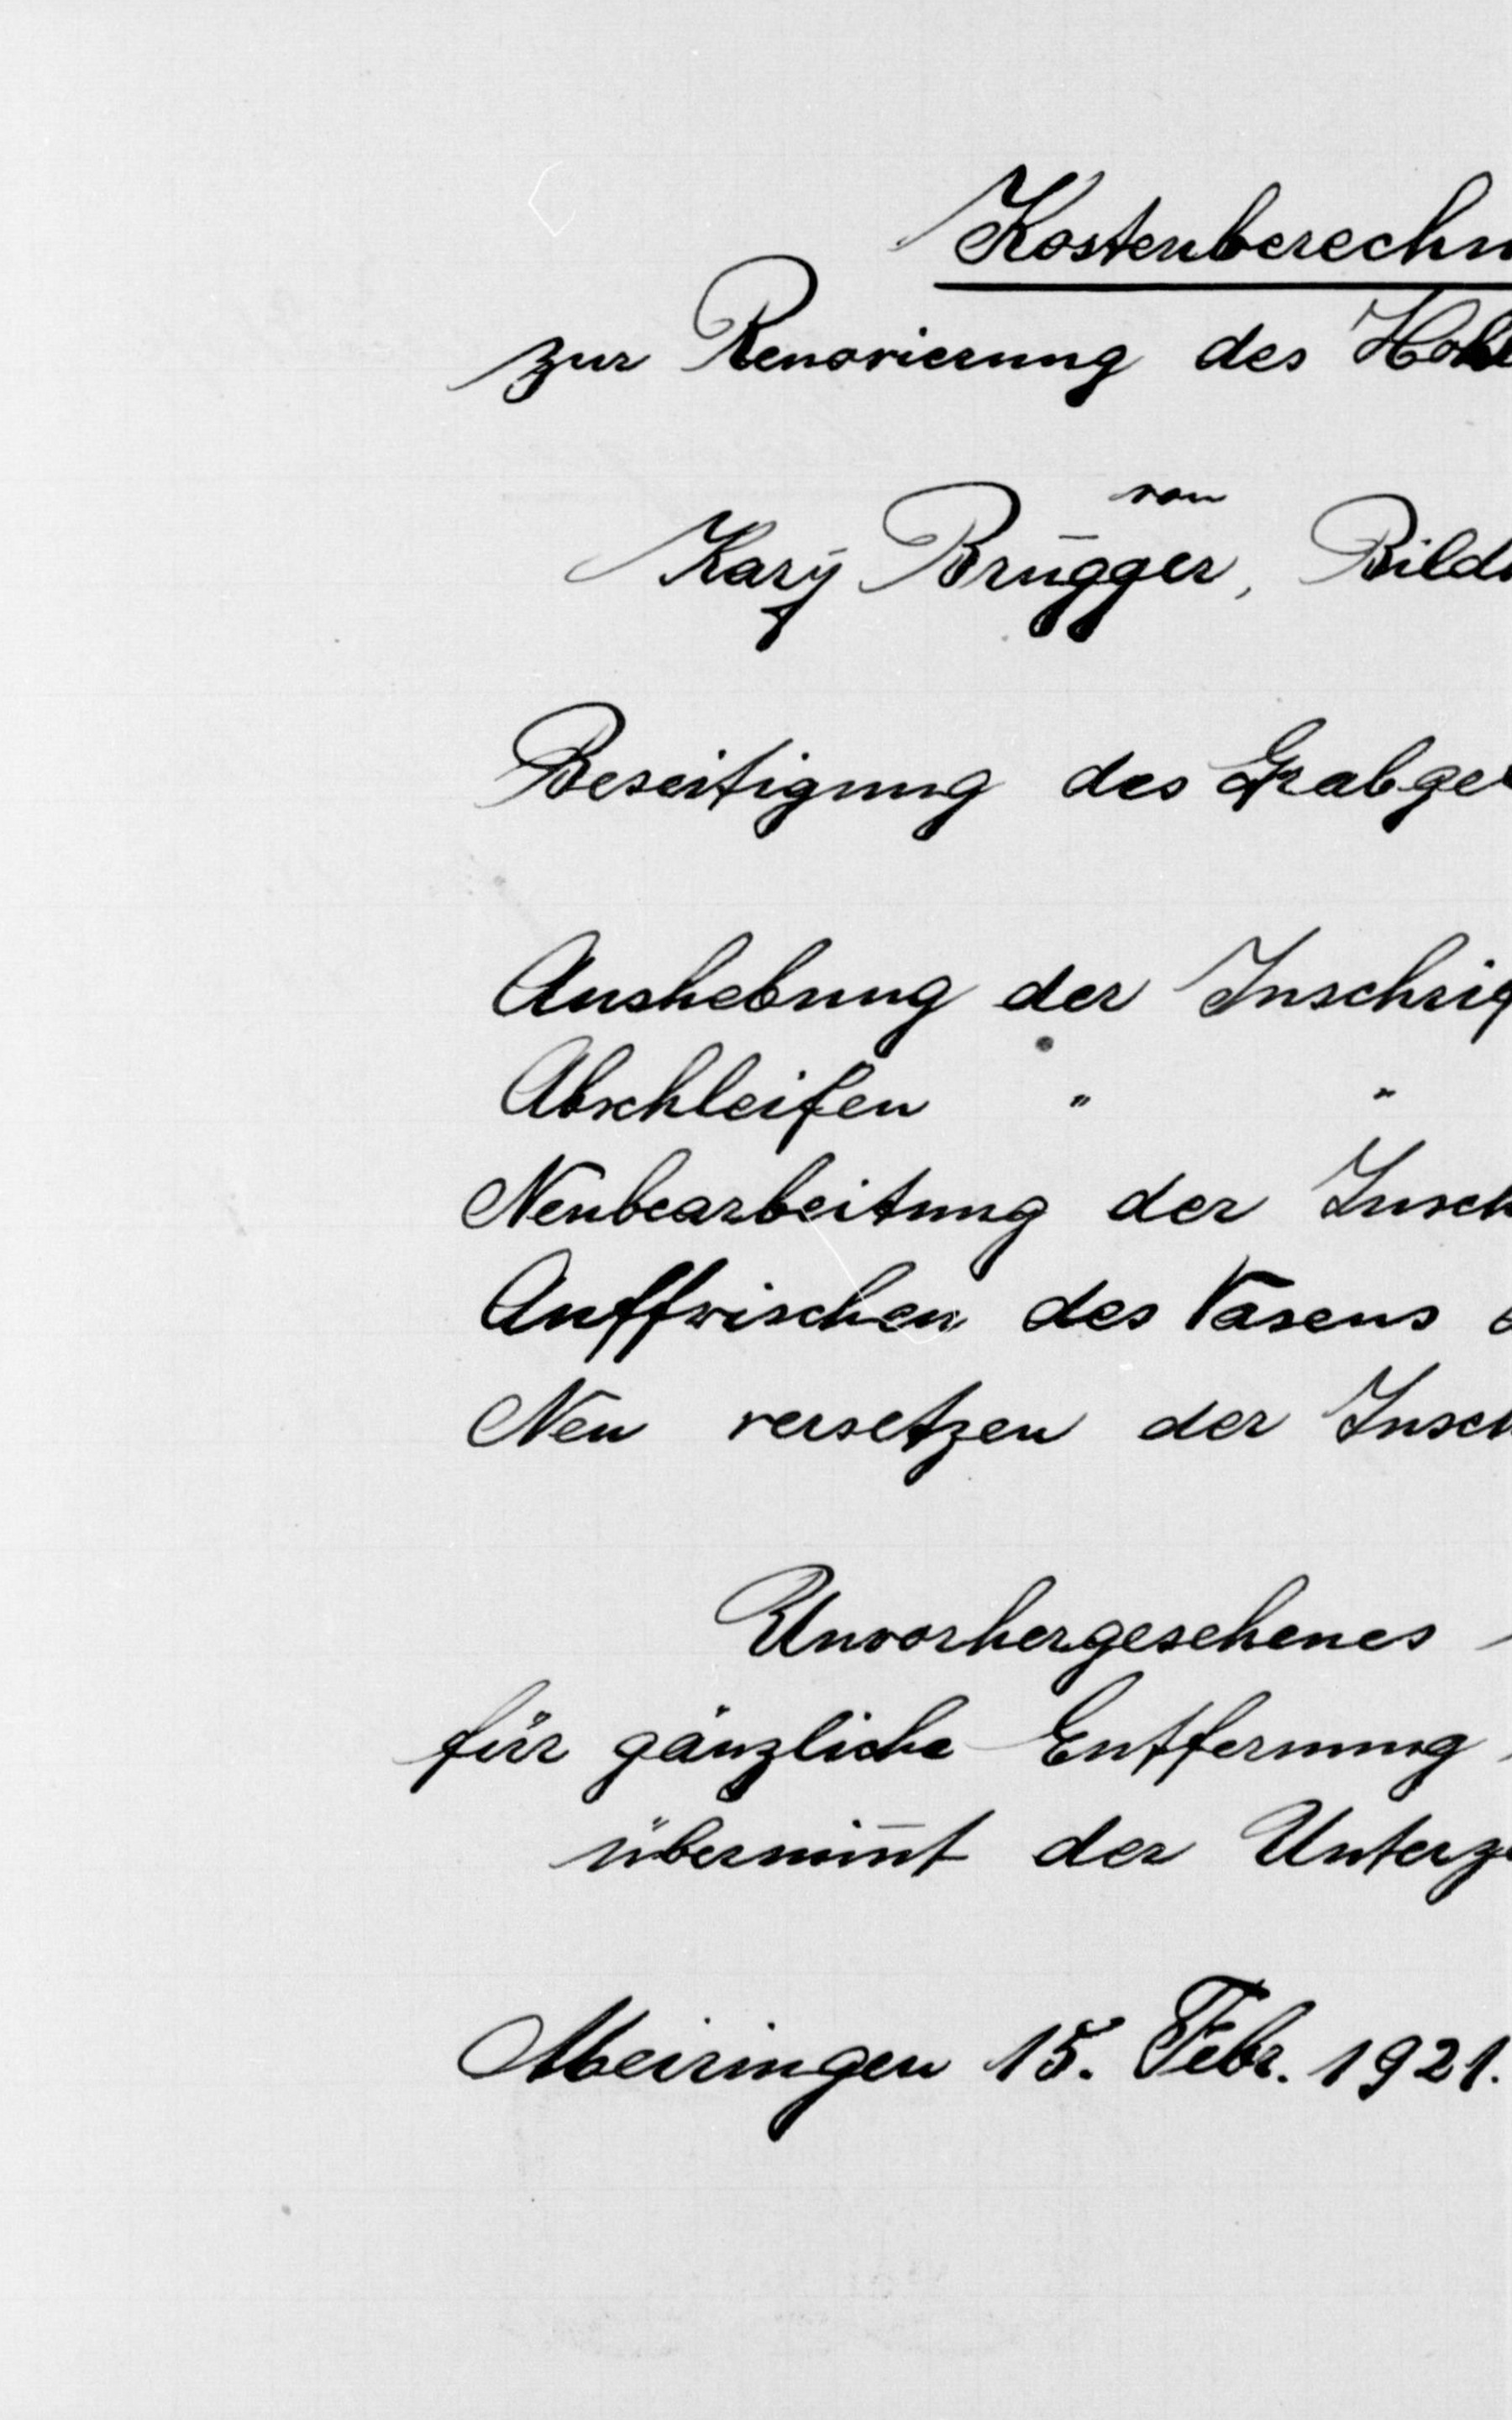 Kostenberechn
zur Renovierung des Hohe
von
Kary Brügger, Bild
Beseitigung des Grabge
Aushebung der Inschrif
Abschleifen " "
Neubearbeitung der Insch
Auffrischen des Vasens
Neu versetzen der Insch
Unvorhergesehenes
für gänzliche Entfernung
übernim̅t der Unterz
Meiringen 15. Febr. 1921.